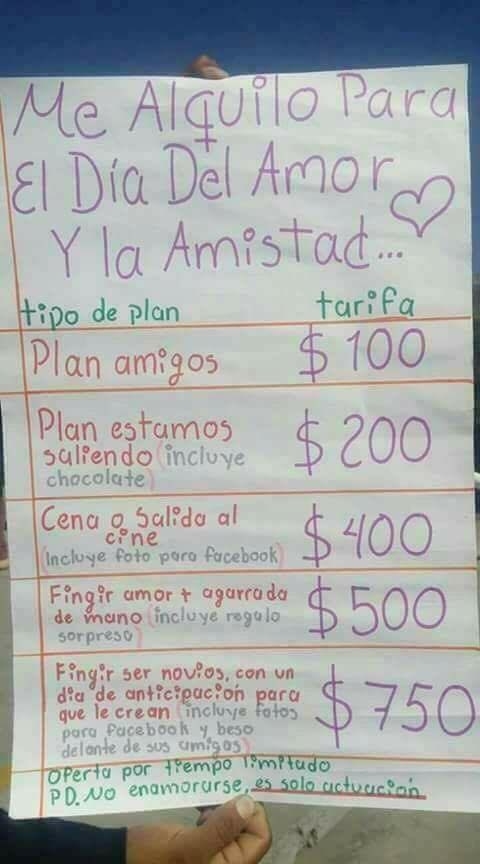 Me Alquilo Para
El Día Del Amor
Y la Amistad...
tipo de plan tarifa
Plan amigos $ 100
Plan estamos
saliendo (incluye
chocolate)
$ 200
Cena o Salida al
cine
(incluye foto para facebook)
$ 400
Fingir amor + agarrada
de mano (incluye regalo
sorpresa)
$ 500
Fingir ser novios, con un
dia de anticipación para
que le crean (incluye fotos
para facebook y beso
delante de sus amigos)
$ 750
Oferta por tiempo limitado
PD. No enamorarse, es solo actuación